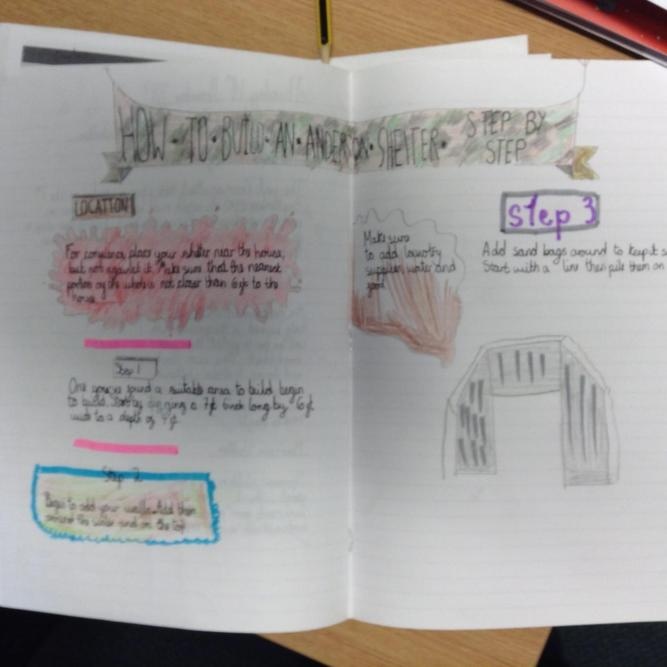 HOW • TO • BUILD • AN • ANDERSON • SHELTER • STEP BY
STEP
LOCATION
place your shelter near the house,
but not against it. Make sure that the nearest
portion of the whole is not closer than 6ft to the
house
Step 1
a suitable area to build begin
to build. Start by digging a 7ft 6inch long by 6ft
wide to a depth of 4ft
Step 2
Begin to add your walls. Add them
around the and on the top
Make sure
to add
supplies, water and
food
Step 3
Add sand bags around to keep it
Start with a line then pile them on